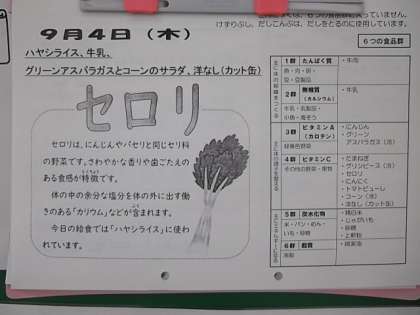 、６つの食品群に入っていません。
けずりぶし、だしこんぶは、だしをとるのに使用しています。
９月４日（木）
ハヤシライス、牛乳、
グリーンアスパラガスとコーンのサラダ、洋なし(カット缶)
セロリ
セロリは、にんじんやパセリと同じセリ科
の野菜です。さわやかな香りや歯ごたえの
ある食感が特徴です。
体の中の余分な塩分を体の外に出す働
きのある「カリウム」などが含まれます。
今日の給食では「ハヤシライス」に使わ
れています。
６つの食品群
１群 たんぱく質
魚・肉・卵・
豆・豆製品
・牛肉
２群 無機質
(カルシウム)
牛乳・乳製品・
小魚・海そう
・牛乳
３群 ビタミンＡ
(カロテン)
緑黄色野菜
・にんじん
・グリーン
アスパラガス（冷）
４群 ビタミンＣ
その他の野菜・果物
・たまねぎ
・グリンピース（冷）
・セロリ
・にんにく
・トマトピューレ
・コーン（冷）
・洋なし(カット缶)
５群 炭水化物
米・パン・めん・
いも・砂糖
・精白米
・じゃがいも
・砂糖
・上新粉
６群 脂質
油脂